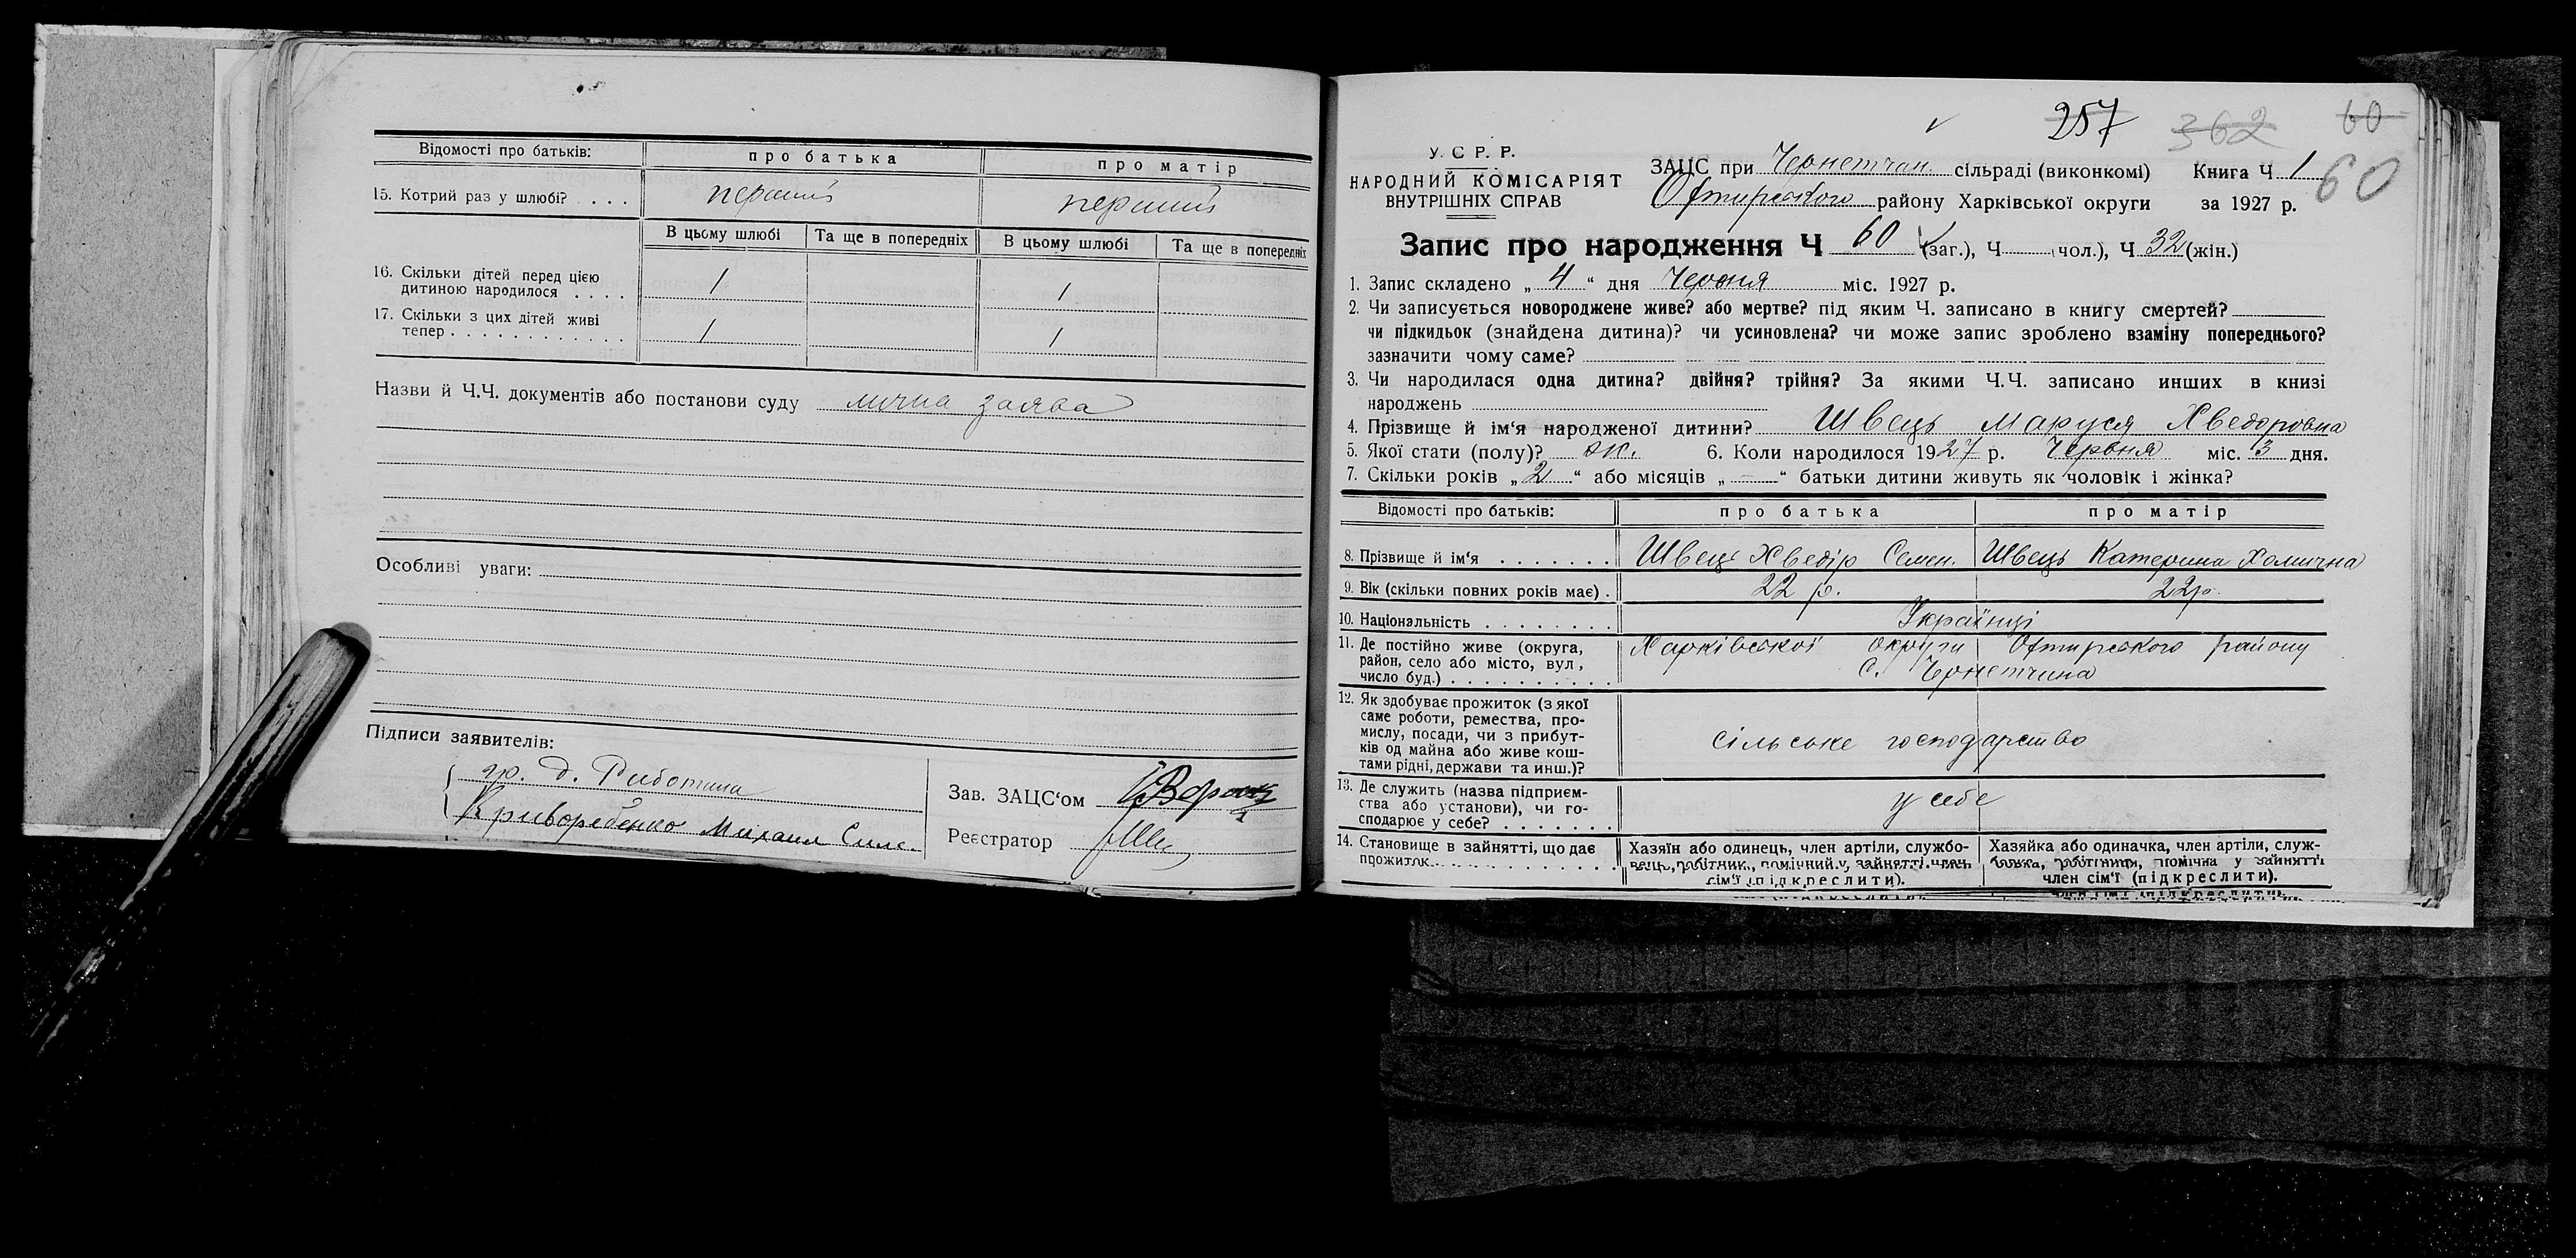 Відомості про батьків:
про батька
про матір
15. Котрий раз у шлюбі? . . . .
перший
перший
В цьому шлюбі
Та ще в попередніх
В цьому шлюбі
Та ще в попередніх
16. Скільки дітей перед цією
дитиною народилося . . . .
1
1
17. Скільки з цих дітей живі
тепер . . . . . . . . . . . .
1
1
Назви й Ч.Ч. документів або постанови суду лична заява
Особливі уваги:
Підписи заявителів:
гр. д. Риботина
Криворебенко Михаил Сим.
Зав. ЗАЦС‘ом
Реєстратор
257
362
60
60
У. С Р. Р.
НАРОДНИЙ КОМІСАРІЯТ
ВНУТРІШНІХ СПРАВ
ЗАЦС при Чернетчан. сільраді (виконкомі) Книга Ч 1
Охтирського району Харківської округи за 1927 р.
Запис про народження Ч 60 (заг.), Ч (чол.), Ч 32 (жін.)
1. Запис складено „ 4 “ дня Червня міс. 1927 р.
2. Чи записується новороджене живе? або мертве? під яким Ч. записано в книгу смертей?
чи підкидьок (знайдена дитина)? чи усиновлена? чи може запис зроблено взаміну попереднього?
зазначити чому саме?
3. Чи народилася одна дитина? двійня? трійня? За якими Ч.Ч. записано инших в книзі
народжень
4. Прізвище й ім‘я народженої дитини? Швець Маруся Хведоровна
5. Якої стати (полу)? ж. 6. Коли народилося 1927 р. Червня міс. 3 дня.
7. Скільки років „ 2 “ або місяців „ – “ батьки дитини живуть як чоловік і жінка?
Відомості про батьків:
про батька
про матір
8. Прізвище й ім‘я . . . . . . .
Швець Хведір Семен.
Швець Катерина Хомична
9. Вік (скільки повних років має) .
22 р.
22 р.
10. Національність . . . . . . . .
Українці
11. Де постійно живе (округа,
район, село або місто, вул,
число буд.) . . . . . . . . . .
Харківської округи Охтирського району
с. Чернетчина
12. Як здобуває прожиток (з якої
саме роботи, ремества, про-
мислу, посади, чи з прибут-
ків од майна або живе кош-
тами рідні, держави та инш.)?
сільське господарство
13. Де служить (назва підприєм-
ства або установи), чи го-
сподарює у себе? . . . . . . .
у себе
14. Становище в зайнятті, що дає
прожиток . . . . . . . . . . .
Хазяїн або одинець, член артіли, службо-
вець, робітник, помічний у зайнятті член
сім‘ї (підкреслити).
Хазяйка або одиначка, член артіли, служ-
бовка, робітниця, помічна у зайнятті
член сім‘ї (підкреслити).